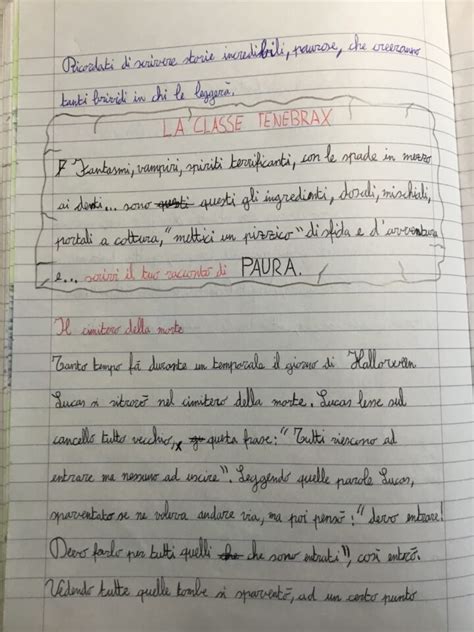 Ricordati di scrivere storie incredibili, paurose, che creeranno
tanti brividi in chi le leggerà.
LA CLASSE TENEBRAX
Fantasmi, vampiri, spiriti terrificanti, con le spade in mezzo
ai denti... sono questi questi gli ingredienti, dosali, mischiali,
portali a cottura, "mettici un pizzico" di sfida e d'avventura
e... scrivi il tuo racconto di PAURA.
Il cimitero della morte
Tanto tempo fà durante un temporale il giorno di Halloween
Lucas si ritrovò nel cimitero della morte. Lucas lesse sul
cancello tutto vecchio, questa frase: "Tutti riescono ad
entrare me nessuno ad uscire". Leggendo quelle parole Lucas,
spaventato se ne voleva andare via, ma poi pensò: "devo entrare!
Devo farlo per tutti quelli che che sono entrati", così entrò.
Vedendo tutte quelle tombe si spaventò, ad un certo punto